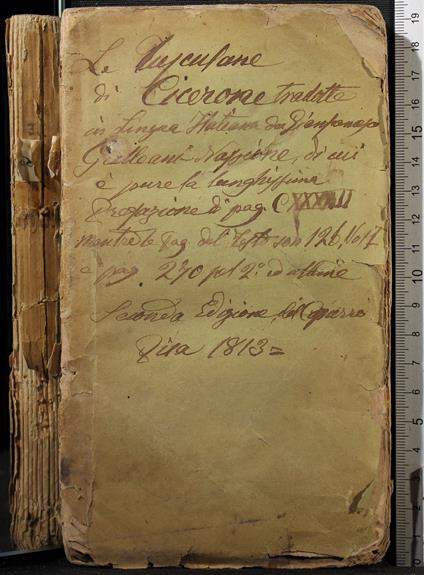 Le Tusculane
di Cicerone tradotte
in Lingua Italiana da Gianfrancesco
Galleani Napione, di cui
è pure la lunghissima
Prefazione di pag. CXXXVIII
mentre le Pag. del Testo son 126,
e pag. 270 pel 2º: ed ultimo
Seconda Edizione, del Capurro
Pisa 1813=
0 1 2 3 4 5 6 7 8 9 10 11 12 13 14 15 16 17 18 19